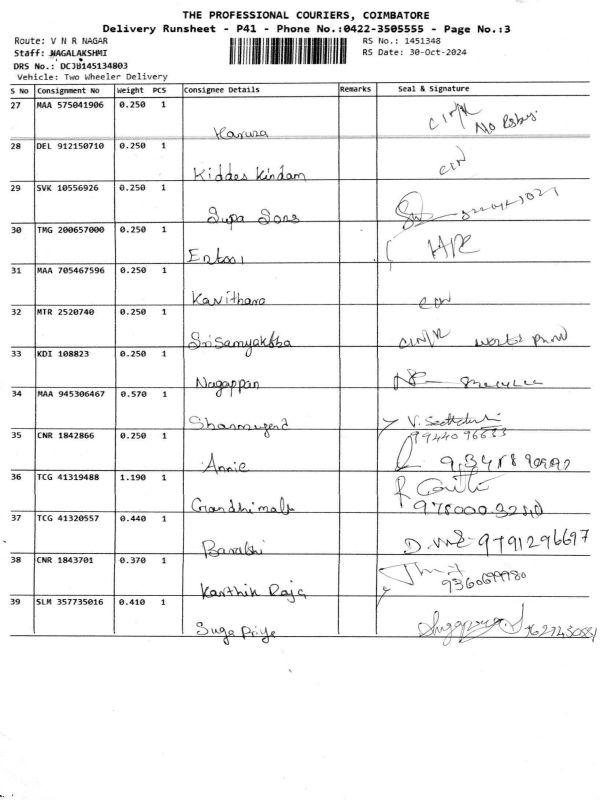 THE PROFESSIONAL COURIERS, COIMBATORE
Delivery Runsheet - P41 - Phone No.:0422-3505555 - Page No.:3
Route: V N R NAGAR RS No.: 1451348
Staff: NAGALAKSHMI RS Date: 30-Oct-2024
DRS No.: DCJB145134803
Vehicle: Two Wheeler Delivery
S No Consignment No Weight PCS Consignee Details Remarks Seal & Signature
27 MAA 575041906 0.250 1
Karuna
28 DEL 912150710 0.250 1
Kiddos Kindam
29 SVK 10556926 0.250 1
Supa Sons
30 TMG 200657000 0.250 1
31 MAA 705467596 0.250 1
Kavithara
32 MTR 2520740 0.250 1
Sri Samyaksha
33 KDI 108823 0.250 1
Nagappan
34 MAA 945306467 0.570 1
35 CNR 1842866 0.250 1
9944096633
Annie
36 TCG 41319488 1.190 1
Grandhimalk
37 TCG 41320557 0.440 1
D. 9791296697
38 CNR 1843701 0.370 1
Karthik Raja
39 SLM 357735016 0.410 1
Suga Priye